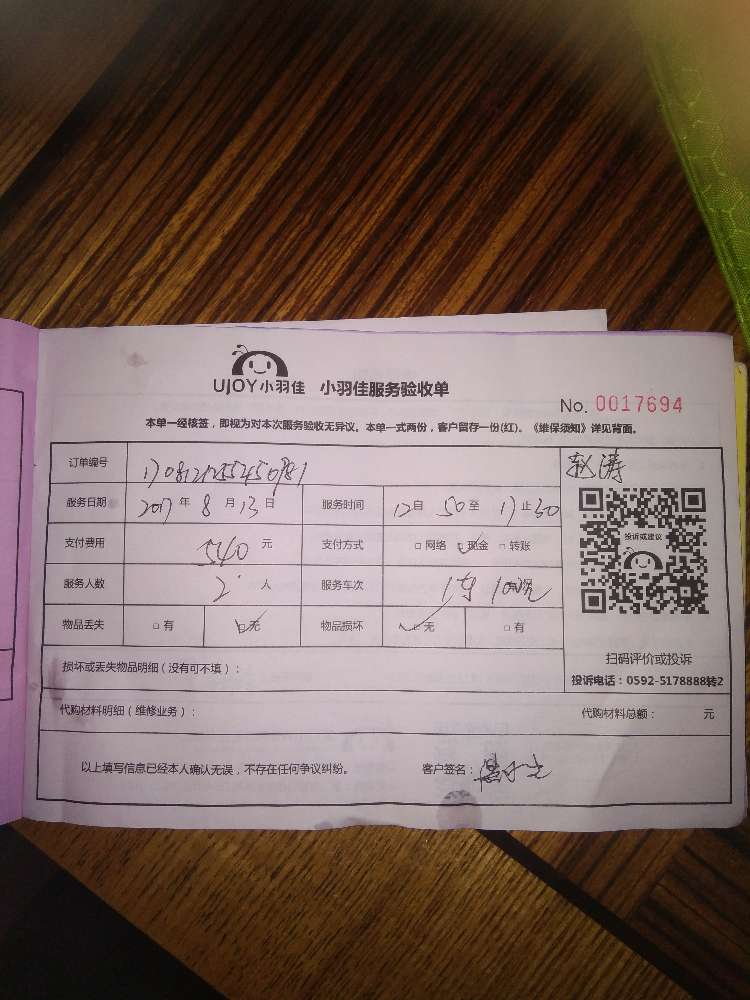 UJOY小羽佳 小羽佳服务验收单
No. 0017694
本单一经核签，即视为对本次服务验收无异议。本单一式两份，客户留存一份(红)。《维保须知》详见背面。
订单编号
赵涛
服务日期 2017 年 8 月 13 日 服务时间 12 自 50 至 17 止 30
支付费用 540 元 支付方式 □ 网络 □ 现金 □ 转账
投诉或建议
服务人数 2 人 服务车次 1车
物品丢失 □ 有 □ 无 物品损坏 □ 无 □ 有
扫码评价或投诉
损坏或丢失物品明细 ( 没有可不填 )：
投诉电话：0592-5178888转2
代购材料明细 ( 维修业务 )： 代购材料总额： 元
以上填写信息已经本人确认无误，不存在任何争议纠纷。 客户签名：